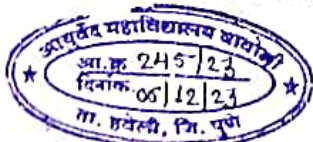 आयुर्वेद महाविद्यालय वाघोली
आ.क्र. 245/23
दिनांक. 05/12/23
ता. हवेली, जि. पुणे